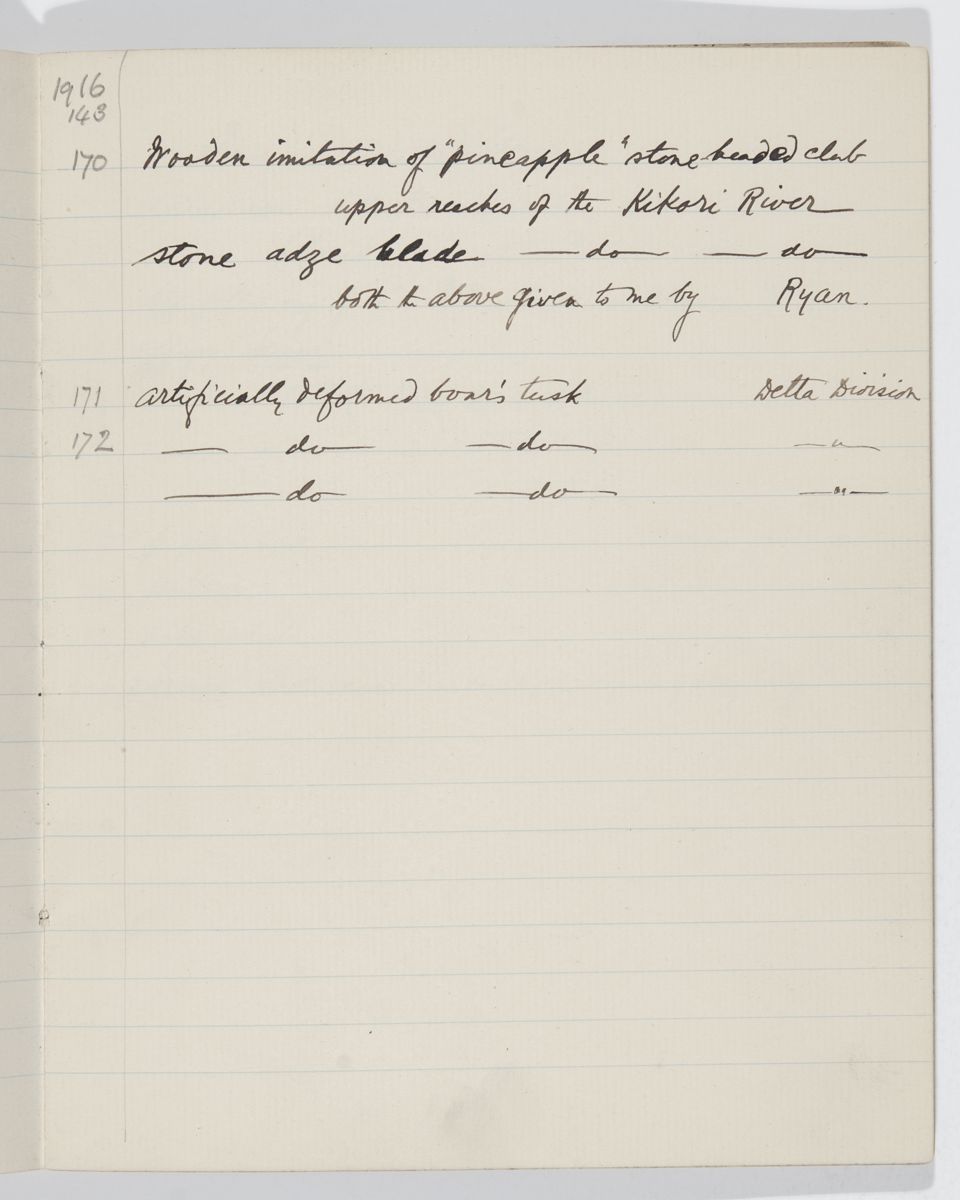 1916
143
170 Wooden imitation of "pineapple" stone headed club
upper reaches of the Kikori River
stone adze blade — do — — do —
both the above given to me by Ryan.
171 artificially deformed boar's tusk Delta Division
172 — do — — do — — " —
— do — — do — — " —